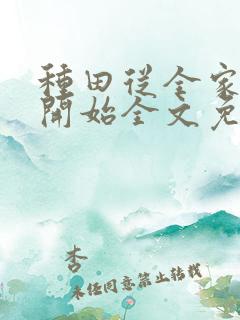 種田從全家
開始全文免
杏
未经同意禁止转载